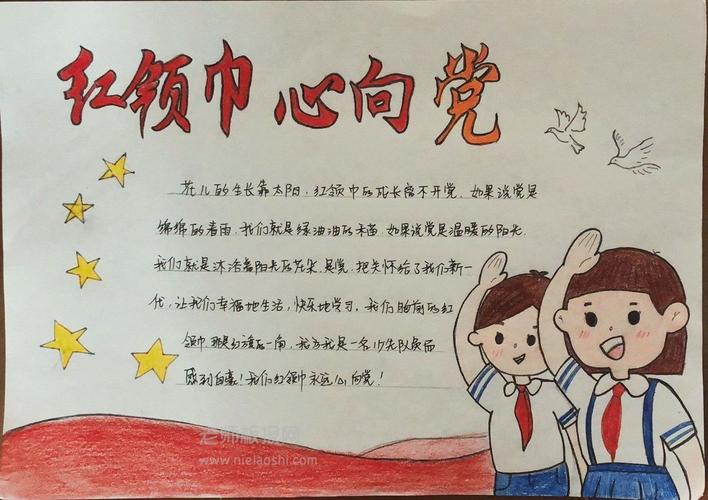 红领巾 心向党
花儿的生长靠太阳,红领巾的成长离不开党.如果说党是
绵绵的春雨,我们就是绿油油的禾苗.如果说党是温暖的阳光.
我们就是沐浴着阳光的花朵.是党,把关怀给了我们新一
代,让我们幸福地生活,快乐地学习.我们胸前的红
领巾.那是红旗的一角,我为我是一名少先队员而
感到自豪!我们红领巾永远心向党!
老师板报网
www.nielaoshi.com